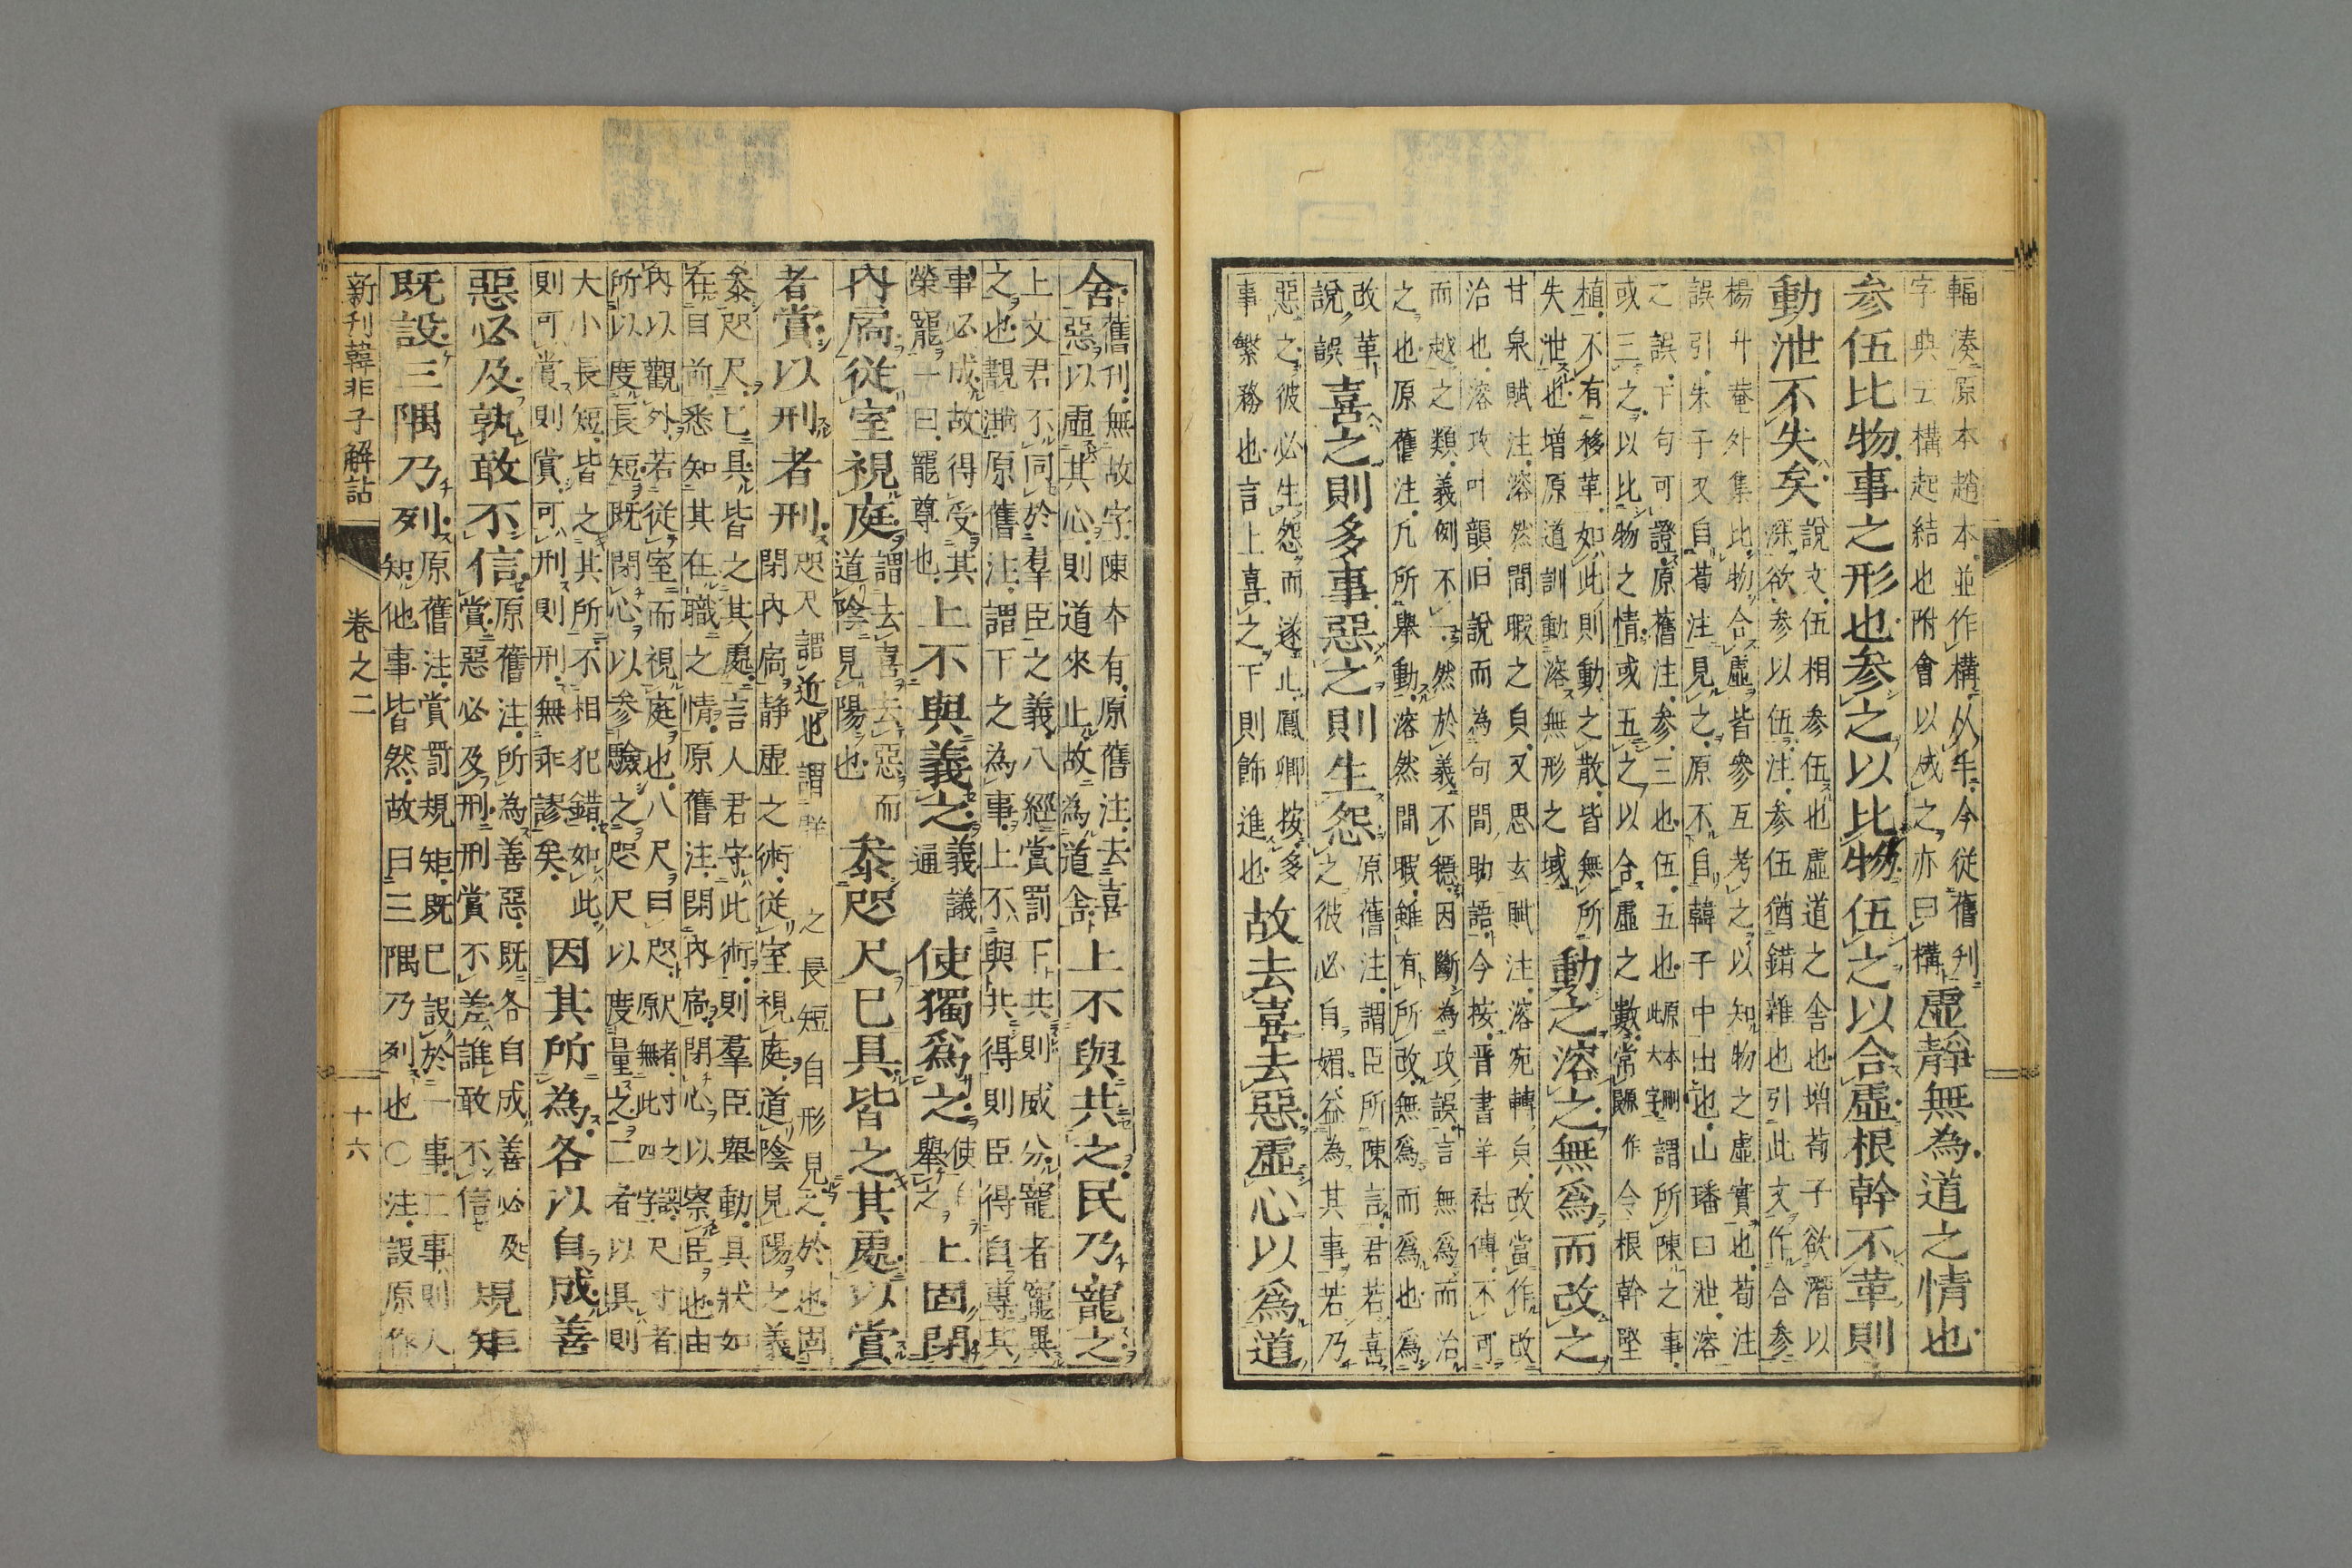 輻湊原本趙本並作構从手今従舊刋
字典云構起結也附會以成之亦曰構
虛靜無為道之情也
参伍比物事之形也参之以比物伍之以合虛根幹不革則
動泄不失矣
說文伍相参伍也虛道之舎也増荀子欲潛以
深欲参以伍注参伍猶錯雜也引此文作合参
楊升菴外集比物合虛皆參互考之以知物之虛實也荀注
誤引朱子又自荀注見之原不自韓子中出也山璠曰泄溶
之誤下句可證原舊注参三也伍五也原本刪此大字謂所陳之事
或三之以比物之情或五之以合虛之數常作令根幹堅
植不有移革如此則動之散皆無所
失泄也増原道訓動溶無形之域
動之溶之無爲而改之
甘泉賦注溶然間暇之皃又思玄賦注溶宛轉皃改當作攻
治也溶攻叶韻旧說而為句間助語今按晋書羊祜傳不可
而越之類義例不一然於義不穏因斷為攻誤言無為而治
之也原舊注凢所舉動溶然間暇雖有所改無爲而爲也爲
改革
說誤
喜之則多事惡之則生怨
原舊注謂臣所陳言君若喜
之彼必自媚益為其事若乃
惡之彼必生怨而遂止鳳卿按多
事繁務也言上喜之下則飾進也
故去喜去惡虛心以爲道
舎
舊刋無故字陳本有原舊注去喜
惡以虛其心則道來止故為道舎
上不與共之民乃寵之
上文君不同於羣臣之義八經賞罰下共則威分寵者寵異
之也觀瀾原舊注謂下之為事上不與共得則臣得自尊其
事必成故得受其
榮寵一曰寵尊也
上不與義之
義議
通
使獨爲之
使自
舉之
上固閉
內扄従室視庭
謂去喜去惡而
道陰見陽也
叅咫尺已具皆之其處以賞
者賞以刑者刑
咫尺謂近也謂群之長短自形見之於也固
閉內扄静虛之術従室視庭道陰見陽之義
叅咫尺已具皆之其處言人君守此術則羣臣舉動具狀如
在目前悉知其在職之情原舊注閉內扄閉心以察臣也由
內以觀外若従室而視庭也八尺曰咫尺者寸之誤原無此四字尺寸者
所以度長短既閉心以参驗之咫尺以度量之二者以具則
大小長短皆之其所不相犯錯如此
則可賞則賞可刑則刑無乖謬矣
因其所為各以自成善
惡必及孰敢不信
原舊注所為善惡既各自成善必及
賞惡必及刑刑賞不差誰敢不信
規矩
既設三隅乃列
原舊注賞罰規矩既已設於一事二事則人
知他事皆然故曰三隅乃列也〇注設原作
新刋韓非子解詁
卷之二
十六